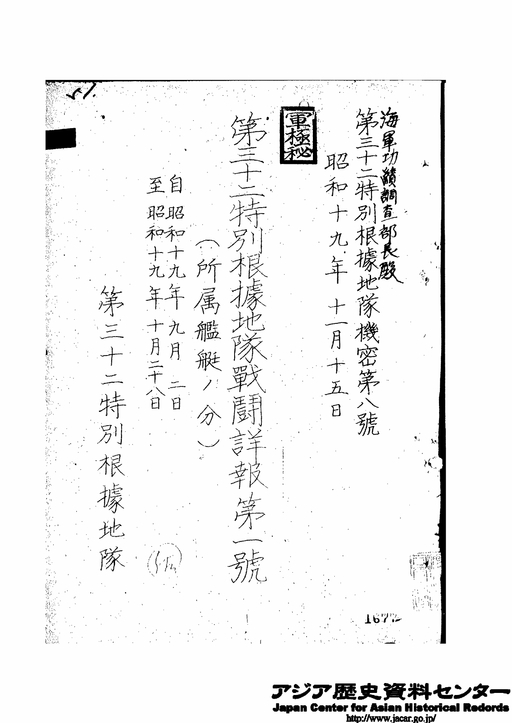 海軍功績調査部長殿
第三十二特別根據地隊機密第八號
昭和十九年十一月十五日
軍極秘
第三十二特別根據地隊戰鬪詳報第一號
（所属艦艇ノ分）
自昭和十九年九月二日
至昭和十九年十月二十八日
第三十二特別根據地隊
アジア歴史資料センター
Japan Center for Asian Historical Records
http://www.jacar.go.jp/